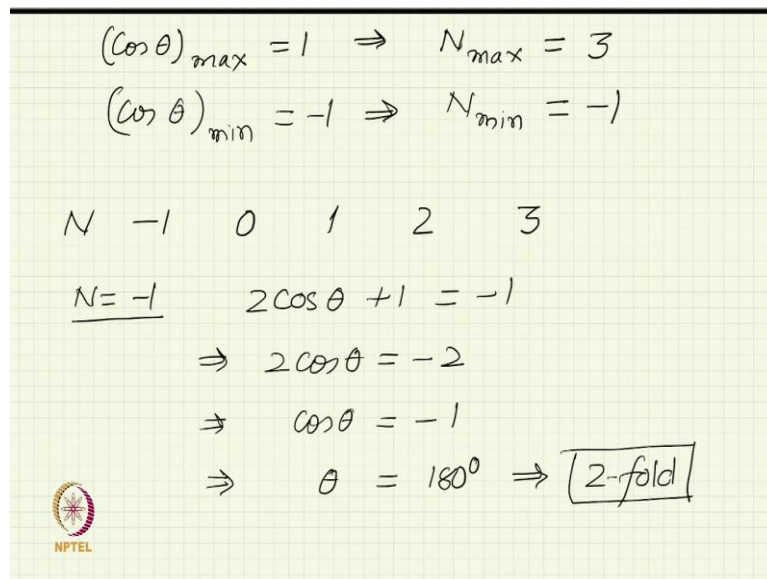 (Cos θ)max = 1 ⇒ Nmax = 3
(Cos θ)min = -1 ⇒ Nmin = -1
N -1 0 1 2 3
N = -1 2 Cos θ + 1 = -1
⇒ 2 Cos θ = -2
⇒ Cos θ = -1
⇒ θ = 180° ⇒ 2-fold
NPTEL